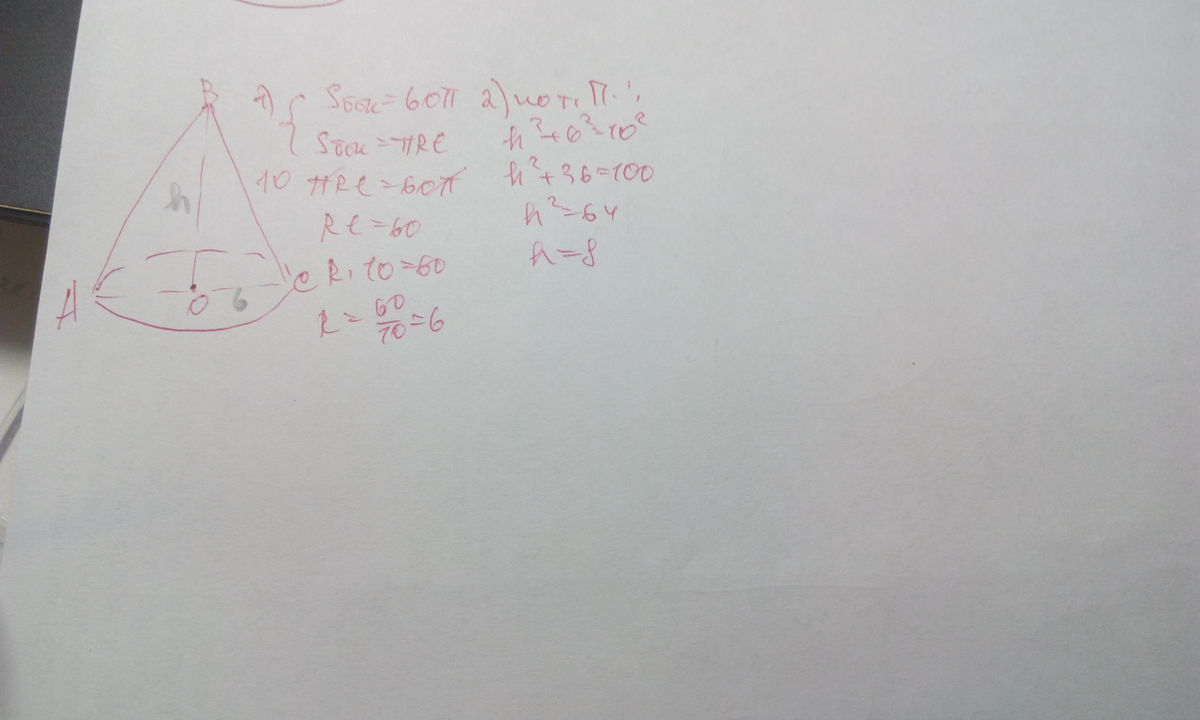 B
h
10
A
O
6
C
1) { Sбок = 60π
Sбок = πRl
πRl = 60π
Rl = 60
R · 10 = 60
R = 60/10 = 6
2) по т. П.:
h² + 6² = 10²
h² + 36 = 100
h² = 64
h = 8